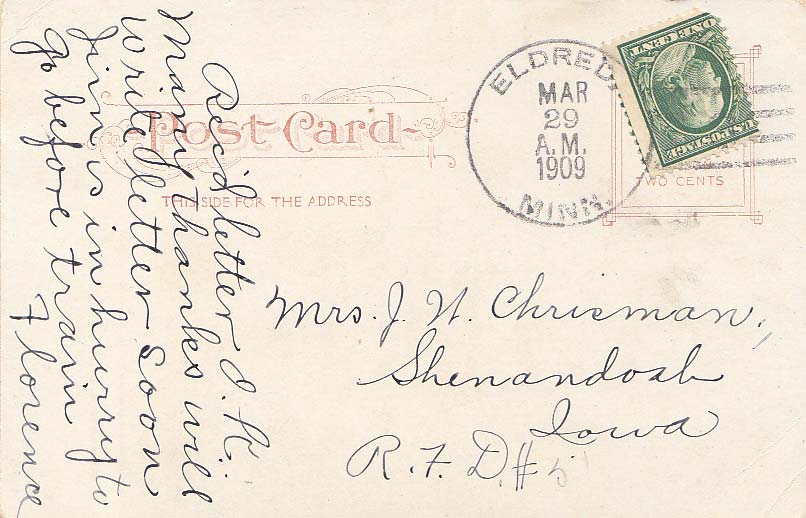 Rec'd letter O.K.
Many thanks will
write letter soon
Jim is in hurry to
go before train
Florence
Post Card
THIS SIDE FOR THE ADDRESS
ELDRED,
MAR
29
A.M.
1909
MINN.
ONE CENT
U.S. POSTAGE
TWO CENTS
Mrs. J. W. Chrisman,
Shenandoah
Iowa
R.F.D. #5